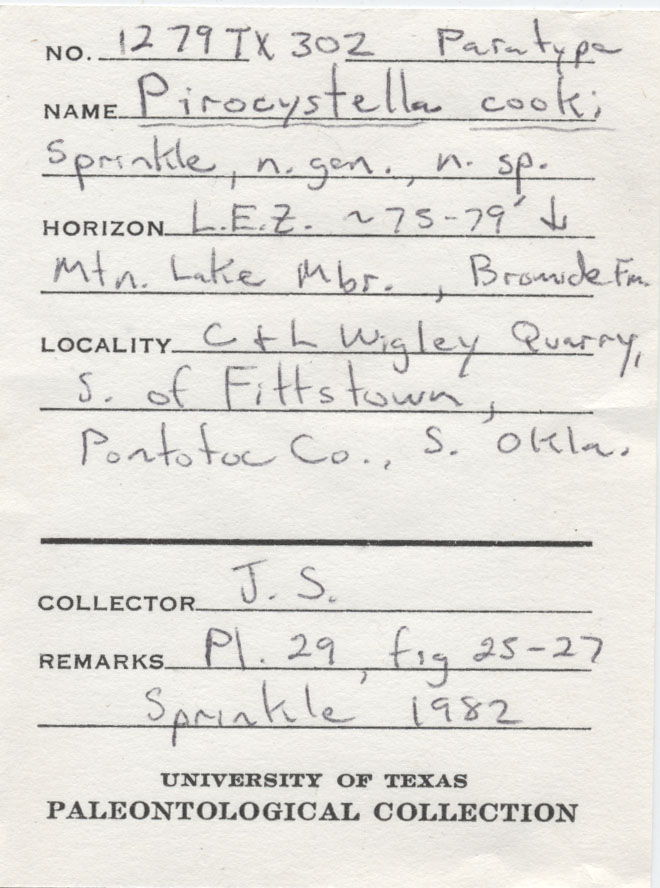 NO. 1279TX302 Paratype
NAME Pirocystella cooki
Sprinkle, n. gen., n. sp.
HORIZON L.E.Z. ~75-79' ↓
Mtn. Lake Mbr., Bromide Fm.
LOCALITY C + L Wigley Quarry,
S. of Fittstown,
Pontotoc Co., S. Okla.
COLLECTOR J. S.
REMARKS Pl. 29, fig 25-27
Sprinkle 1982
UNIVERSITY OF TEXAS
PALEONTOLOGICAL COLLECTION